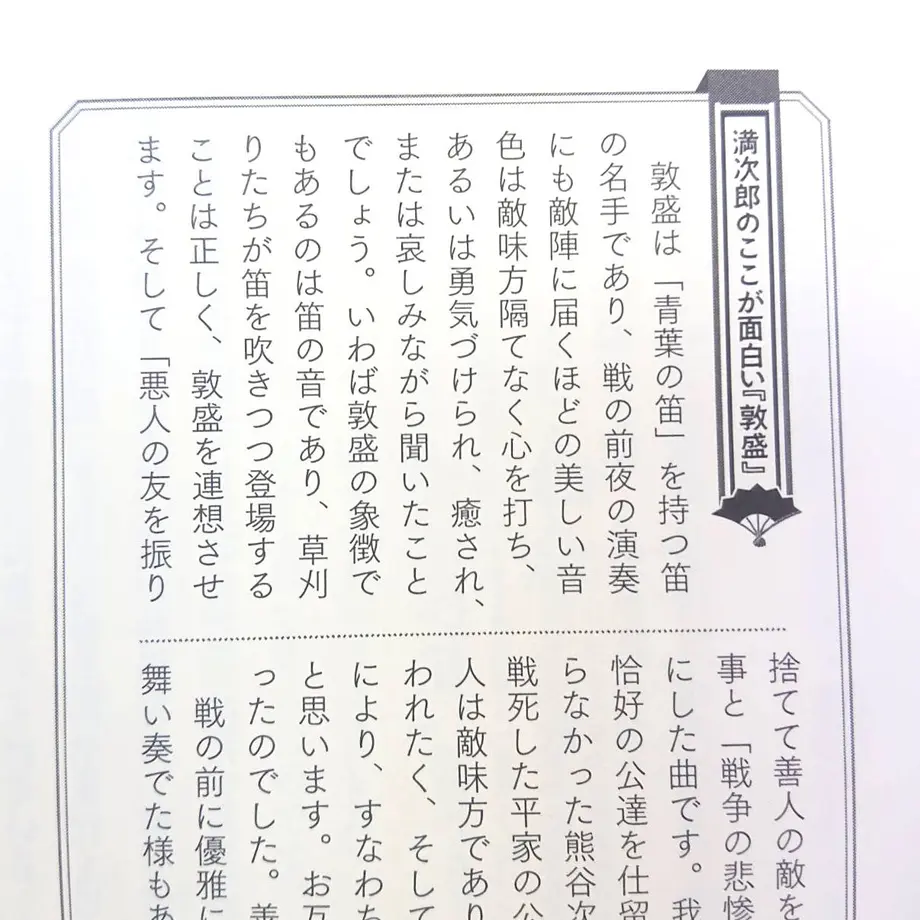 満次郎のここが面白い『敦盛』
敦盛は「青葉の笛」を持つ笛
の名手であり、戦の前夜の演奏
にも敵陣に届くほどの美しい音
色は敵味方隔てなく心を打ち、
あるいは勇気づけられ、癒され、
または哀しみながら聞いたこと
でしょう。いわば敦盛の象徴で
もあるのは笛の音であり、草刈
りたちが笛を吹きつつ登場する
ことは正しく、敦盛を連想させ
ます。そして「悪人の友を振り
捨てて善人の敵を
事と「戦争の悲惨
にした曲です。我
恰好の公達を仕留
らなかった熊谷次
戦死した平家の公
人は敵味方であり
われたく、そして
により、すなわち
と思います。お互
ったのでした。善
戦の前に優雅に
舞い奏でた様もあ